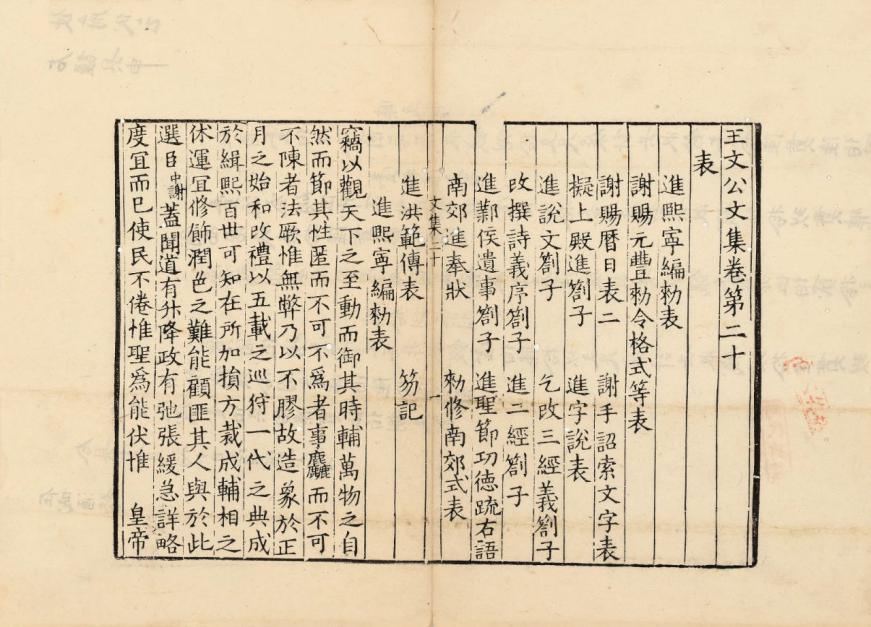 王文公文集卷第二十
表
進熙寧編勑表
謝賜元豐勑令格式等表
謝賜曆日表二 謝手詔索文字表
擬上殿進劄子 進字說表
進說文劄子 乞改三經義劄子
改撰詩義序劄子 進二經劄子
進鄴侯遺事劄子 進聖節功德疏右語
南郊進奉狀 勑修南郊式表
文集二十 一
進洪範傳表 笏記
進熙寧編勑表
竊以觀天下之至動而御其時輔萬物之自
然而節其性匿而不可不為者事麤而不可
不陳者法厥惟無弊乃以不膠故造象於正
月之始和改禮以五載之巡狩一代之典成
於緝熙百世可知在所加損方裁成輔相之
休運宜修飾潤色之難能顧匪其人與於此
選臣中謝蓋聞道有升降政有弛張緩急詳略
度宜而已使民不倦惟聖為能伏惟 皇帝